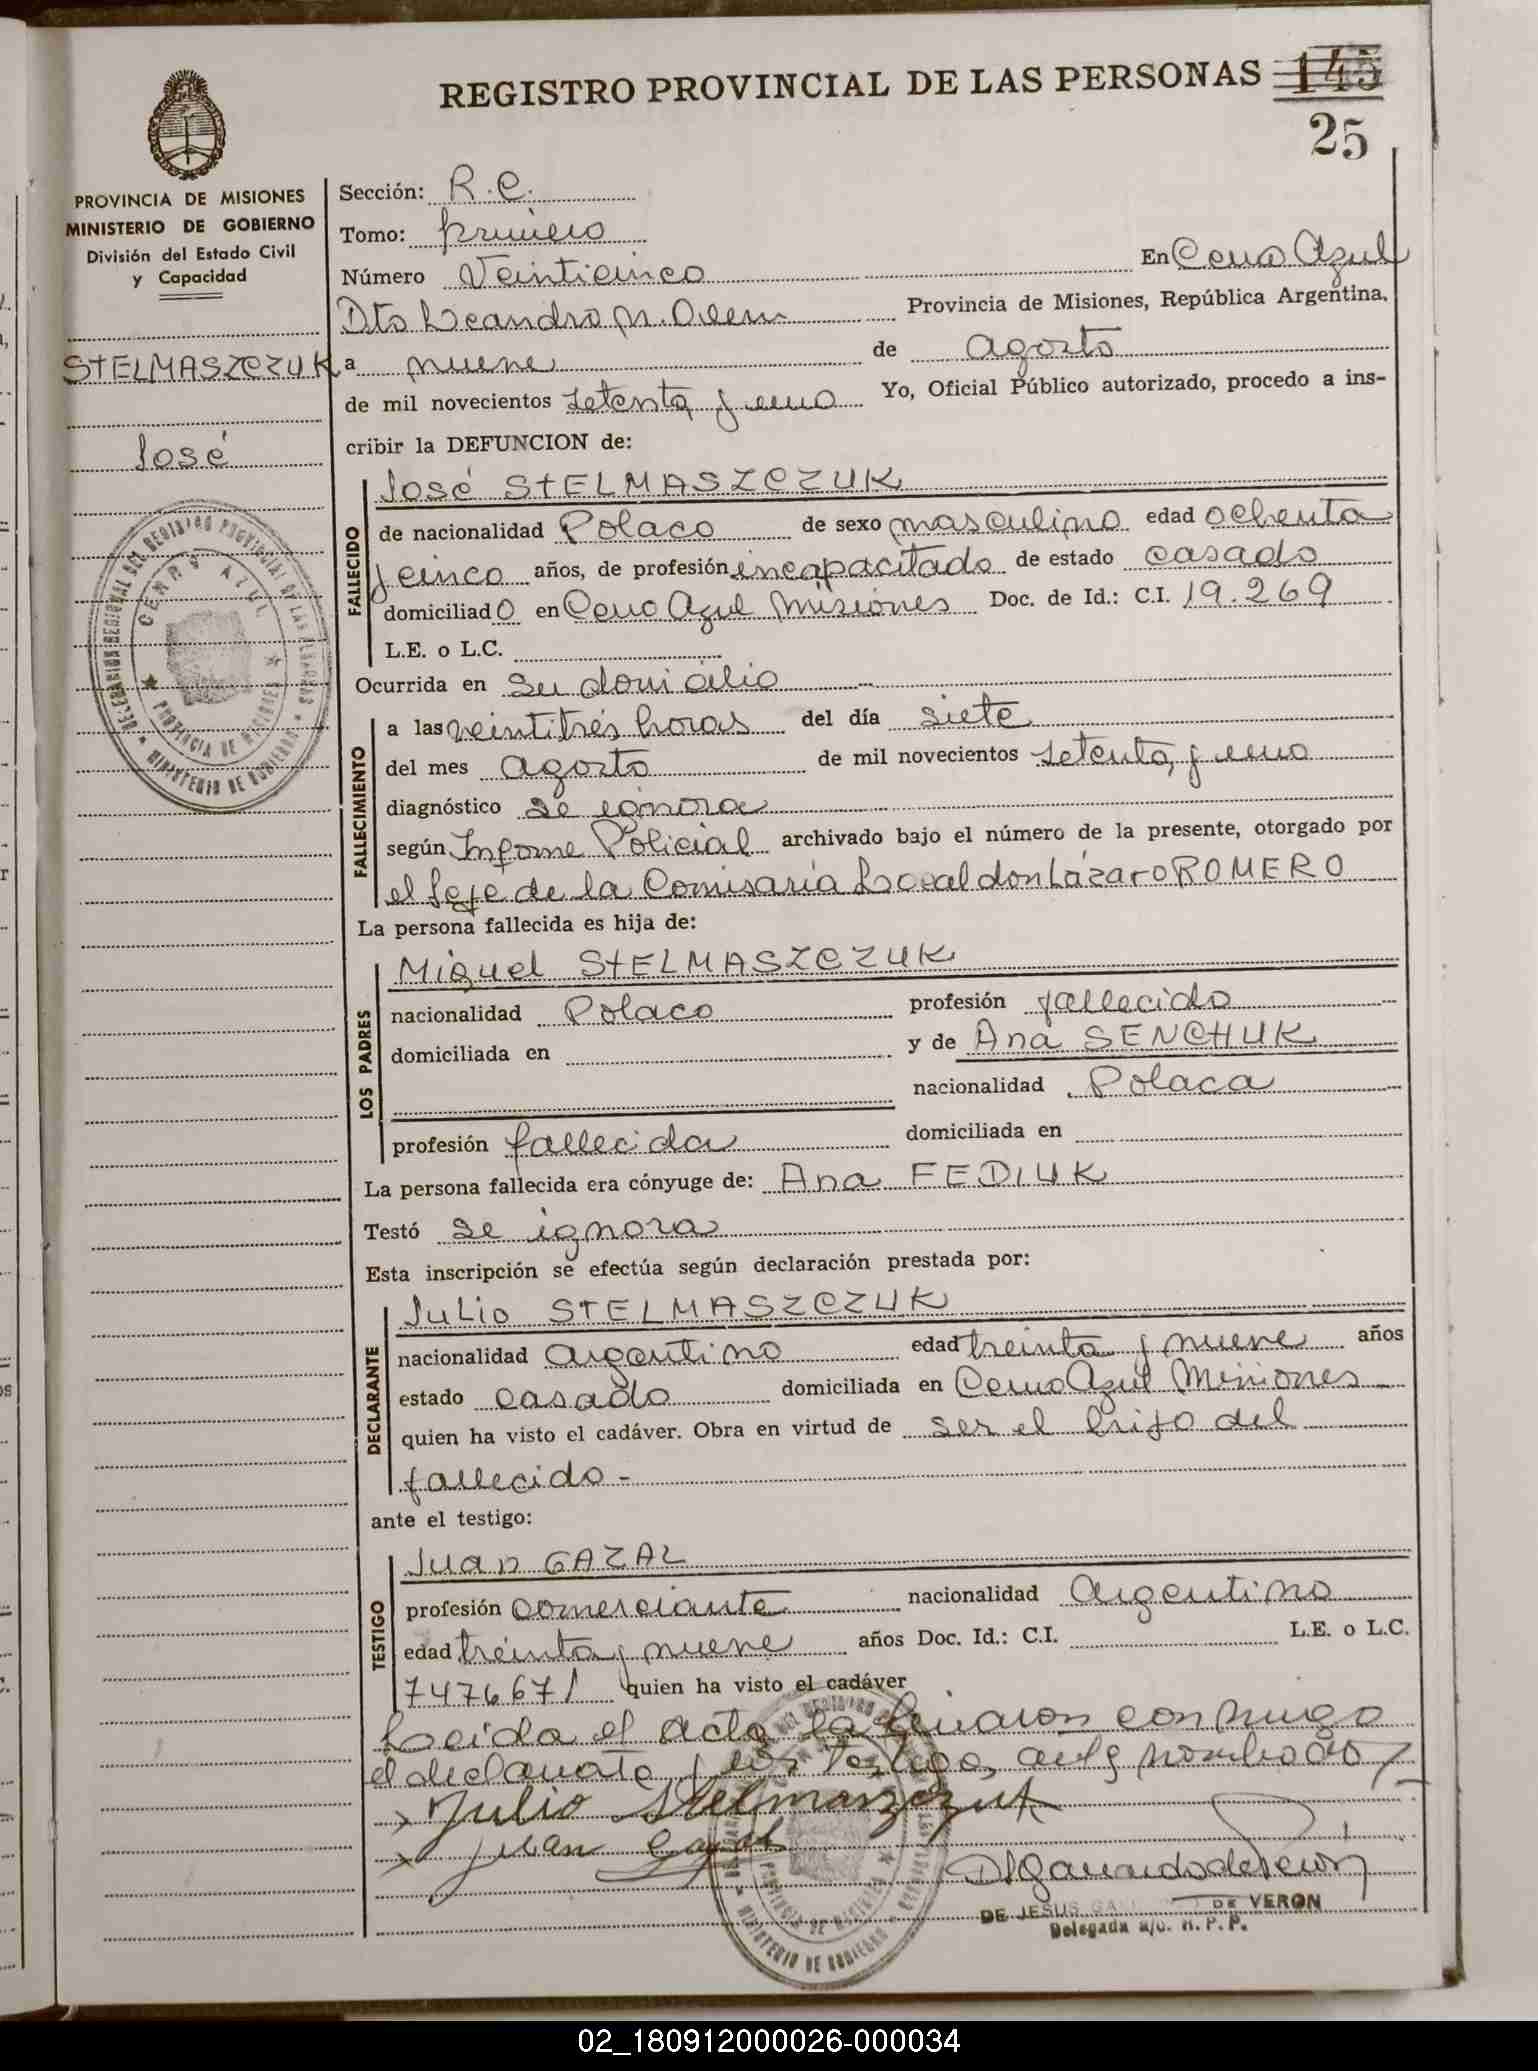 REGISTRO PROVINCIAL DE LAS PERSONAS 145
25
PROVINCIA DE MISIONES
MINISTERIO DE GOBIERNO
División del Estado Civil
y Capacidad
STELMASZCZUK
José
Sección: R.C.
Tomo: primero
Número Veinticinco En Cerro Azul
Dto Leandro N. Alem Provincia de Misiones, República Argentina,
a nueve de agosto
de mil novecientos setenta y uno Yo, Oficial Público autorizado, procedo a ins-
cribir la DEFUNCION de:
FALLECIDO
José STELMASZCZUK
de nacionalidad Polaco de sexo masculino edad ochenta
y cinco años, de profesión incapacitado de estado casado
domiciliado en Cerro Azul Misiones Doc. de Id.: C.I. 19.269
L.E. o L.C.
Ocurrida en su domicilio
FALLECIMIENTO
a las veintitrés horas del día siete
del mes agosto de mil novecientos setenta y uno
diagnóstico se ignora
según Informe Policial archivado bajo el número de la presente, otorgado por
el Jefe de la Comisaría Local don Lázaro ROMERO
La persona fallecida es hija de:
LOS PADRES
Miguel STELMASZCZUK
nacionalidad Polaco profesión fallecido
domiciliada en y de Ana SENCHUK
nacionalidad Polaca
profesión fallecida domiciliada en
La persona fallecida era cónyuge de: Ana FEDIUK
Testó se ignora
Esta inscripción se efectúa según declaración prestada por:
DECLARANTE
Julio STELMASZCZUK
nacionalidad argentino edad treinta y nueve años
estado casado domiciliada en Cerro Azul Misiones
quien ha visto el cadáver. Obra en virtud de ser el hijo del
fallecido -
ante el testigo:
TESTIGO
Juan GAZAL
profesión comerciante nacionalidad argentino
edad treinta y nueve años Doc. Id.: C.I. L.E. o L.C.
7476671 quien ha visto el cadáver
Leida el acta la firmaron conmigo
el declarante y los testigo,
Julio Stelmaszczuk
Juan Gazal
DE JESUS DE VERON
Delegada a/c. R. P. P.
DELEGACION REGIONAL DEL REGISTRO PROVINCIAL DE LAS PERSONAS
CERRO AZUL
PROVINCIA DE MISIONES
MINISTERIO DE GOBIERNO
02_180912000026-000034